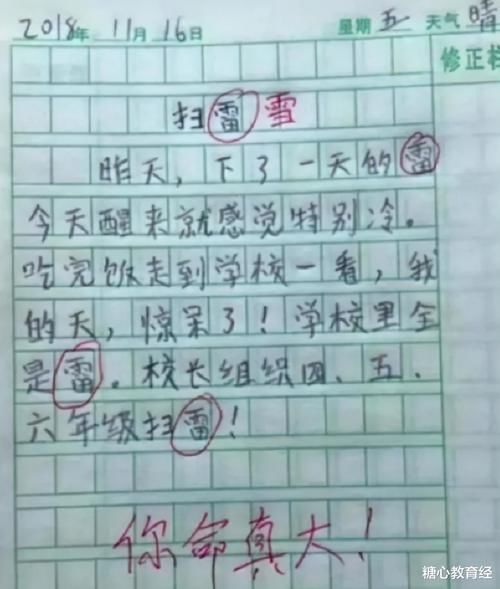 2018年 11月 16日 星期 五 天气 晴
修正栏
扫雷 雪
昨天，下了一天的雷
今天醒来就感觉特别冷。
吃完饭走到学校一看，我
的天，惊呆了！学校里全
是雷。校长组织四、五、
六年级扫雷！
你命真大！
糖心教育经